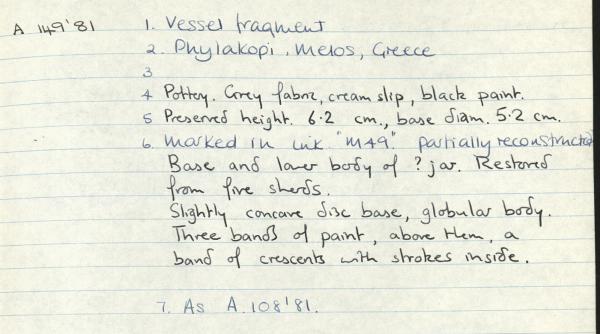 A 149'81
1. Vessel fragment
2. Phylakopi, Melos, Greece
3
4 Pottery. Grey fabric, cream slip, black paint.
5 Preserved height. 6.2 cm., base diam. 5.2 cm.
6. Marked in ink "M49". Partially reconstructed
Base and lower body of ? jar. Restored
from five sherds.
Slightly concave disc base, globular body.
Three bands of paint, above them, a
band of crescents with strokes inside.
7. As A.108'81.